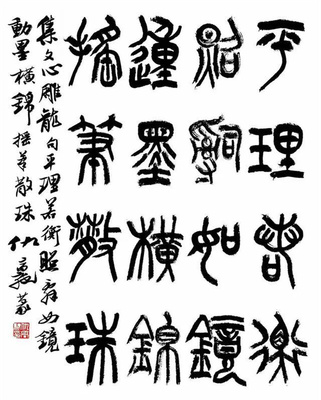 平理若衡
照辭如鏡
動墨橫錦
搖筆散珠
集文心雕龍句平理若衡照辭如鏡
動墨橫錦搖筆散珠